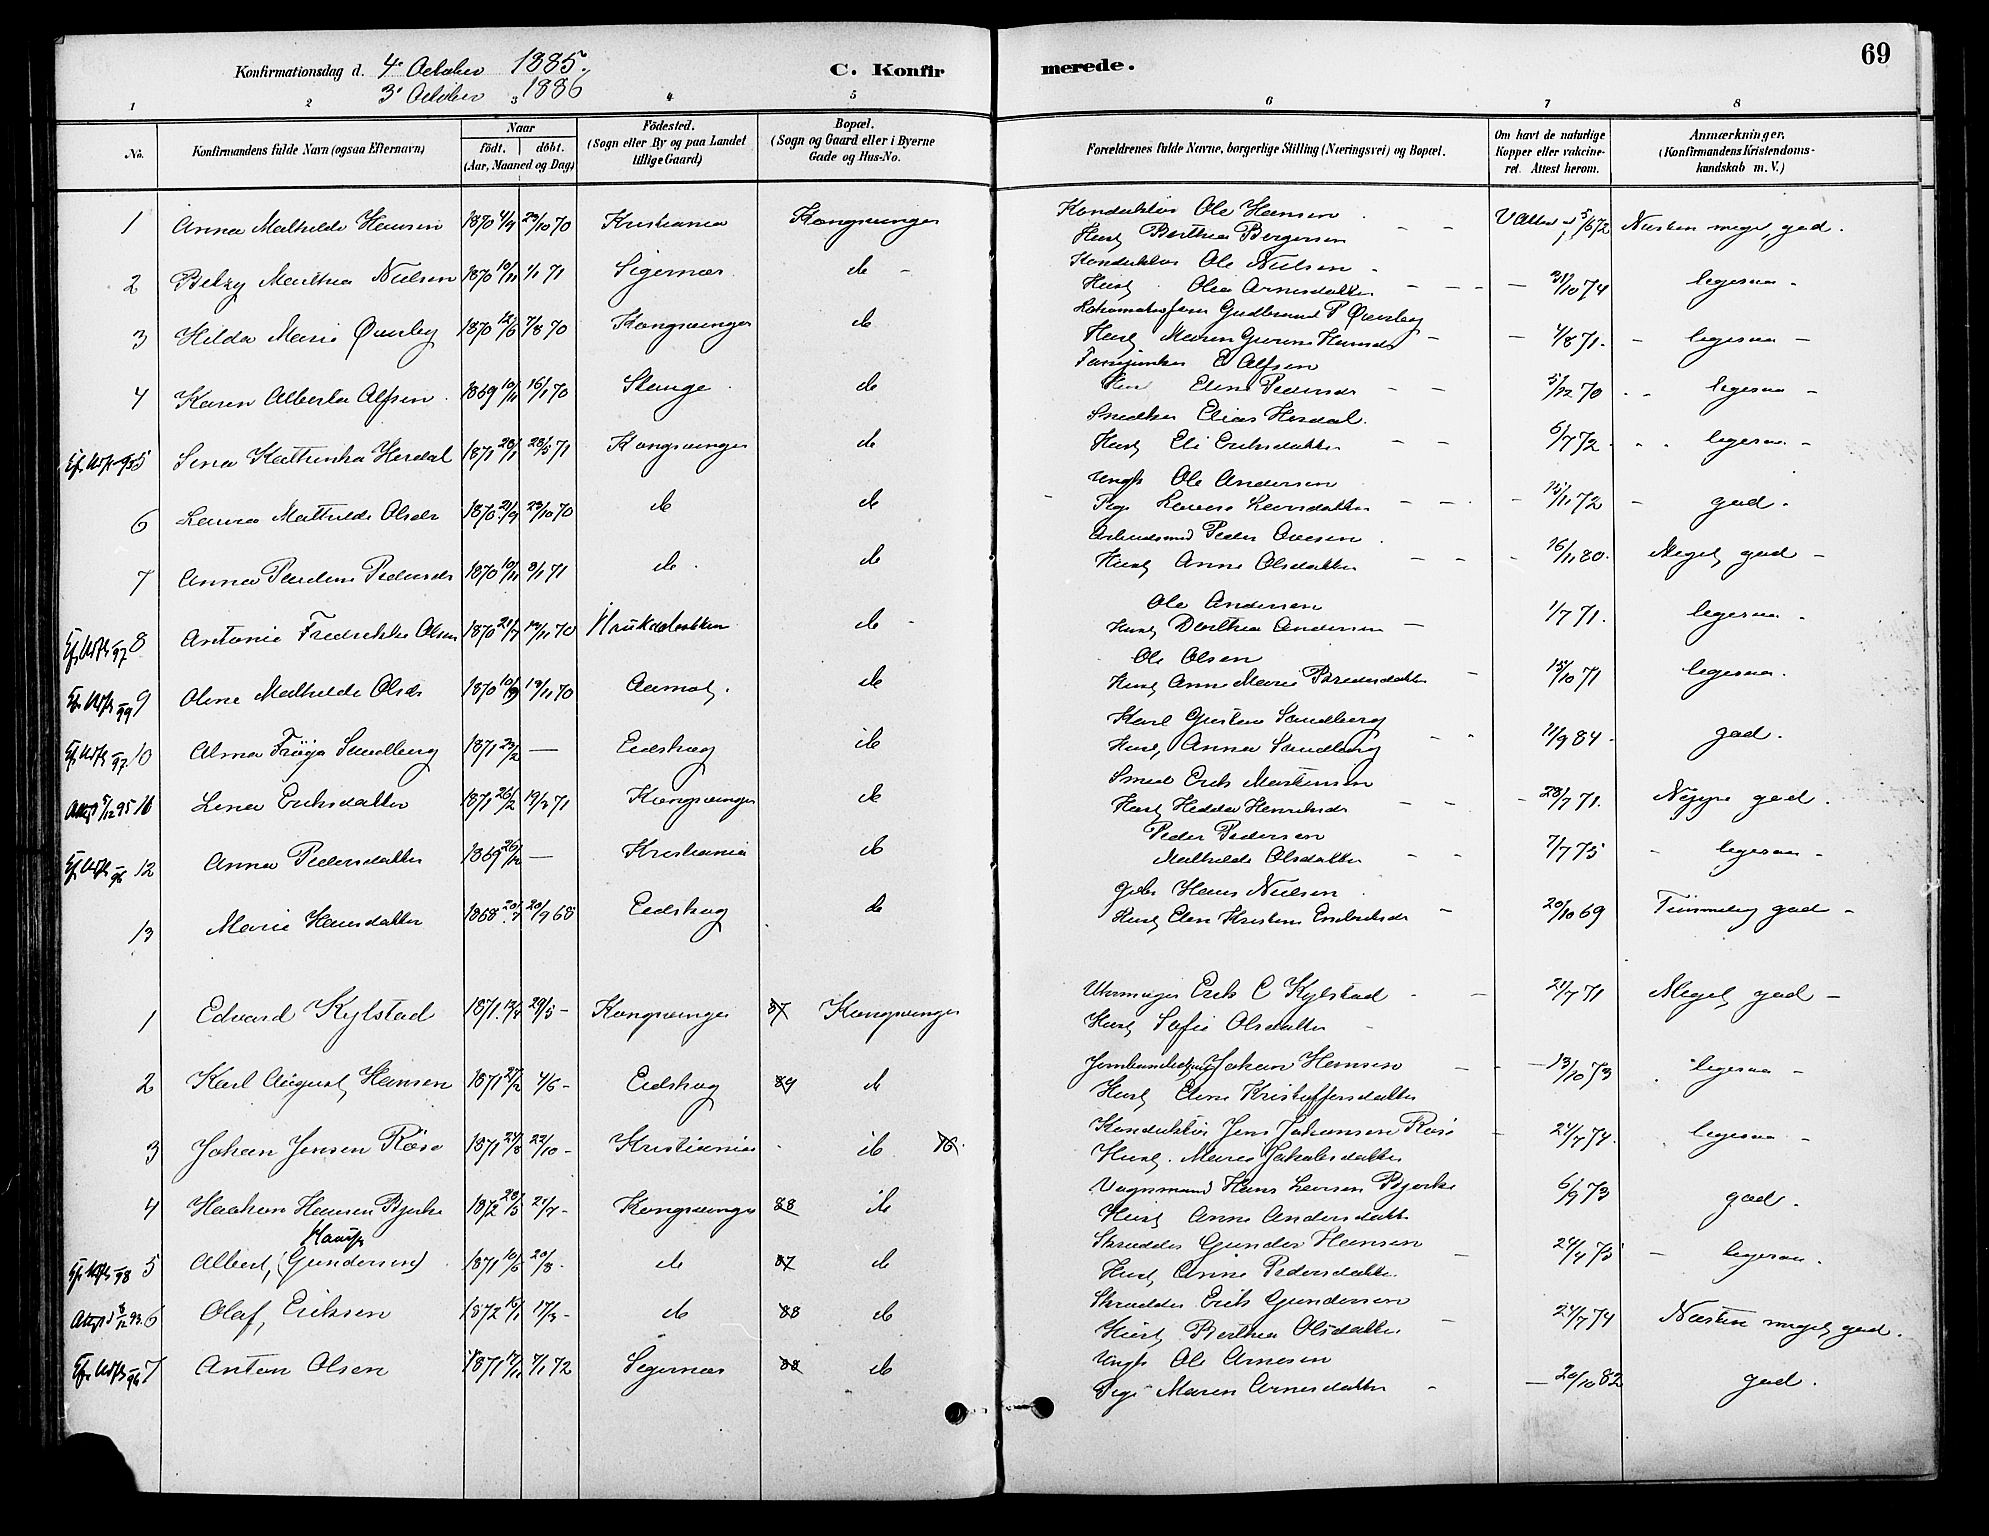 69
Konfirmationsdag d. 4. October 1885. C. Konfirmerede.
3. October 1886
1 2 3 4 5 6 7 8
No. Konfirmandens fulde Navn (ogsaa Efternavn) Naar født. døbt. (Aar, Maaned og Dag) Födested. (Sogn eller By og paa Landet tillige Gaard) Bopæl. (Sogn og Gaard eller i Byerne Gade og Hus-No. Forældrenes fulde Navne, borgerlige Stilling (Næringsvei) og Bopæl. Om havt de naturlige Kopper eller vakcineret. Attest herom. Anmærkninger. (Konfirmandens Kristendomskundskab m. V.)
1 Anna Mathilde Hansen 1870 4/9 23/10 70 Kristiania Kongsvinger Konduktør Ole Hansen
Hust Berthea Bergersen 5/6 72 Næsten meget god.
2 Betzy Mathea Nielsen 1870 10/11 1/1 71 Sigernæs do Konduktør Ole Nielsen
Hust Olea Arnesdatter 31/10 74 ligesaa
3 Hilda Marie Øverby 1870 12/6 7/8 70 Kongsvinger do Gudbrand P Øverby
Hust Maren Hansdr 4/8 71. ligesaa
4 Karen Alberta Alfsen 1869 10/11 16/1 70 Stange do E Alfsen
Eline Pedersdr 5/12 70 ligesaa
5 Sina Kathinka Herdal 1871 28/1 28/5 71 Kongsvinger do Snedker Elias Herdal
Hust Eli Eriksdatter 6/7 72. ligesaa
6 Laura Mathilde Olsdr 1870 21/9 23/10 70 do do Ungk Ole Andersen
Pige Lovise Larsdatter 15/11 72 god.
7 Anna Pauline Pedersdr 1870 10/11 8/1 71 do do Arbeidsmd Peder Ovesen
Hust Anne Olsdatter 16/11 80. Meget god
8 Antonie Fredrikke Olsen 1870 21/7 do Ole Andersen
Hust Dorthea Andersen 1/7 71. ligesaa
9 Oline Mathilde Olsdr 1870 13/11 70 Aamot. do Ole Olsen
Hust Anne Marie Pedersdatter 15/10 71 ligesaa.
10 Alma Frøya Sundberg 1871 23/2 — Eidskog do Karl Gustav Sandberg
Hust, Anna Sandberg 11/9 84. god.
Lina Eriksdatter 1871 26/2 19/3 71 Kongsvinger do Smed Erik Mortensen
Hust Hedda Henriksdr 28/7 71. Neppe god.
12 Anna Pedersdatter 1869 26/12 — Kristiania do Peder Pedersen
Mathilde Olsdatter 7/7 75 ligesaa
13 Marie Hansdatter 1868 20/7 20/9 68 Eidskog do Hans Nielsen
Hust Elen Kristine 20/10 69 Temmelig god
1 Edvard Kylstad 1871. 12/4 29/5 — Kongsvinger 87 Kongsvinger Urmager Erik C Kylstad
Hust Sofie Olsdatter 21/7 71 Meget god
2 Karl August Hansen 1871 27/2 4/6 — Eidskog 89 do Johan Hansen
Hust Eline Kristoffersdatter 13/10 73 ligesaa
3 Johan Jensen Rose 1871 24/8 22/10 — Kristiania do Konduktør Jens Johansen Rose
Hust. Maria Jakobsdatter 21/7 74. ligesaa
4 Haakon Hansen Bjerke 1872 28/5 21/7 — Kongsvinger 88 do Vognmand Hans Larsen Bjerke
Hust Anne Andersdatter 6/9 73 god.
5 Albert, (Gundersen) 1871 10/5 20/8. do 87 do Skrædder Gunder Hansen
Hust Anne Pedersdatter 24/4 75 ligesaa.
6 Olaf, Eriksen 1872 17/3 — do 88 do Skrædder Erik Gundersen
Hust Berthea Olsdatter 24/7 74 Næsten meget god.
7 Anton Olsen 1871 7/1 72 Sigernæs 88 do Ungk Ole Arnesen
Pige Maren Arnesdatter 20/10 82 god.